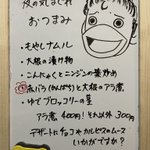 夜の気まぐれ
おつまみ
・もやしナムル
・大根の漬け物
・こんにゃくとニンジンの葉炒め
・豚バラ(とんばら)と大根のアラ煮
・ゆでブロッコリーの茎
アラ煮 400円！それ以外 300円
デザートにチョコorカルピスのムース
いかがですか？